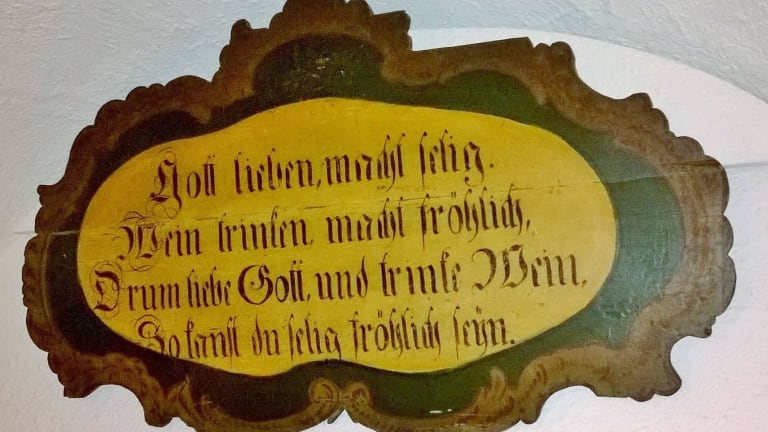 Gott lieben, macht selig.
Wein trinken, macht fröhlich,
Drum liebe Gott, und trinke Wein,
So kan̄st du selig fröhlich seÿn.